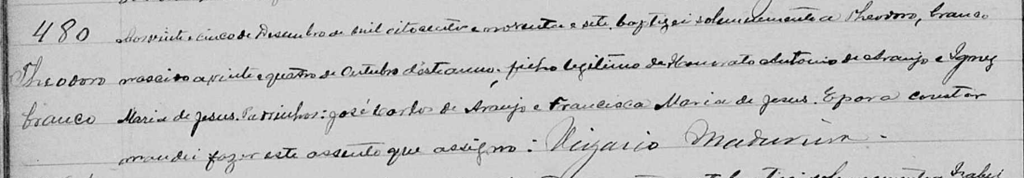 480 Aos vinte e cinco de Desembro de mil oitocentos e noventa e sete baptizei solennemente a Theodoro, branco
Theodoro nascido a vinte e quatro de Outubro d'este anno. filho legitimo de Honorato Antonio de Araujo e Ignez
branco Maria de Jesus. Padrinhos: José Carlos de Araujo e Francisca Maria de Jesus. E para constar
mandei fazer este assento que assigno: Vigario Madureira.
Izabel